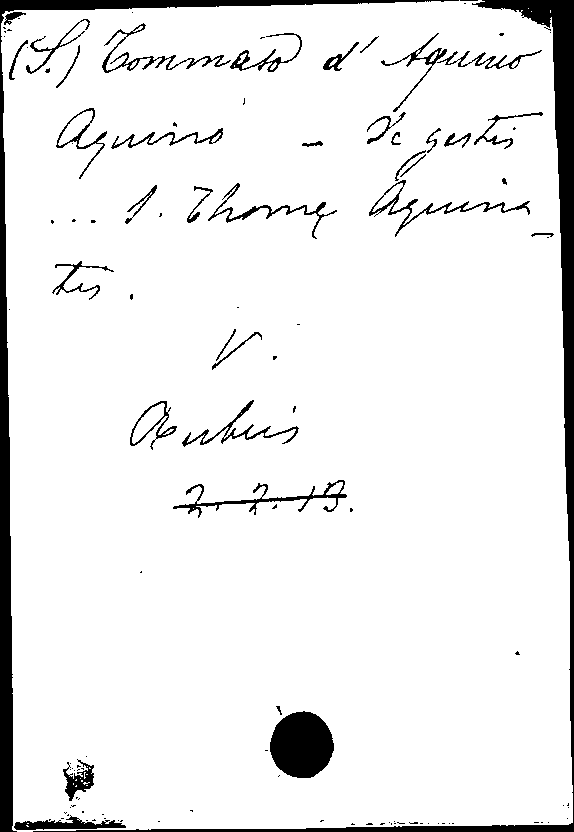 (S.) Tommaso d' Aquino
Aquino - De gestis
... S. Thomę Aquina-
tis.
V.
Rubeis
2. 2. 13.